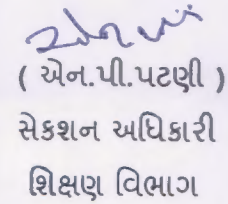 ( એન.પી.પટણી )
સેકશન અધિકારી
શિક્ષણ વિભાગ